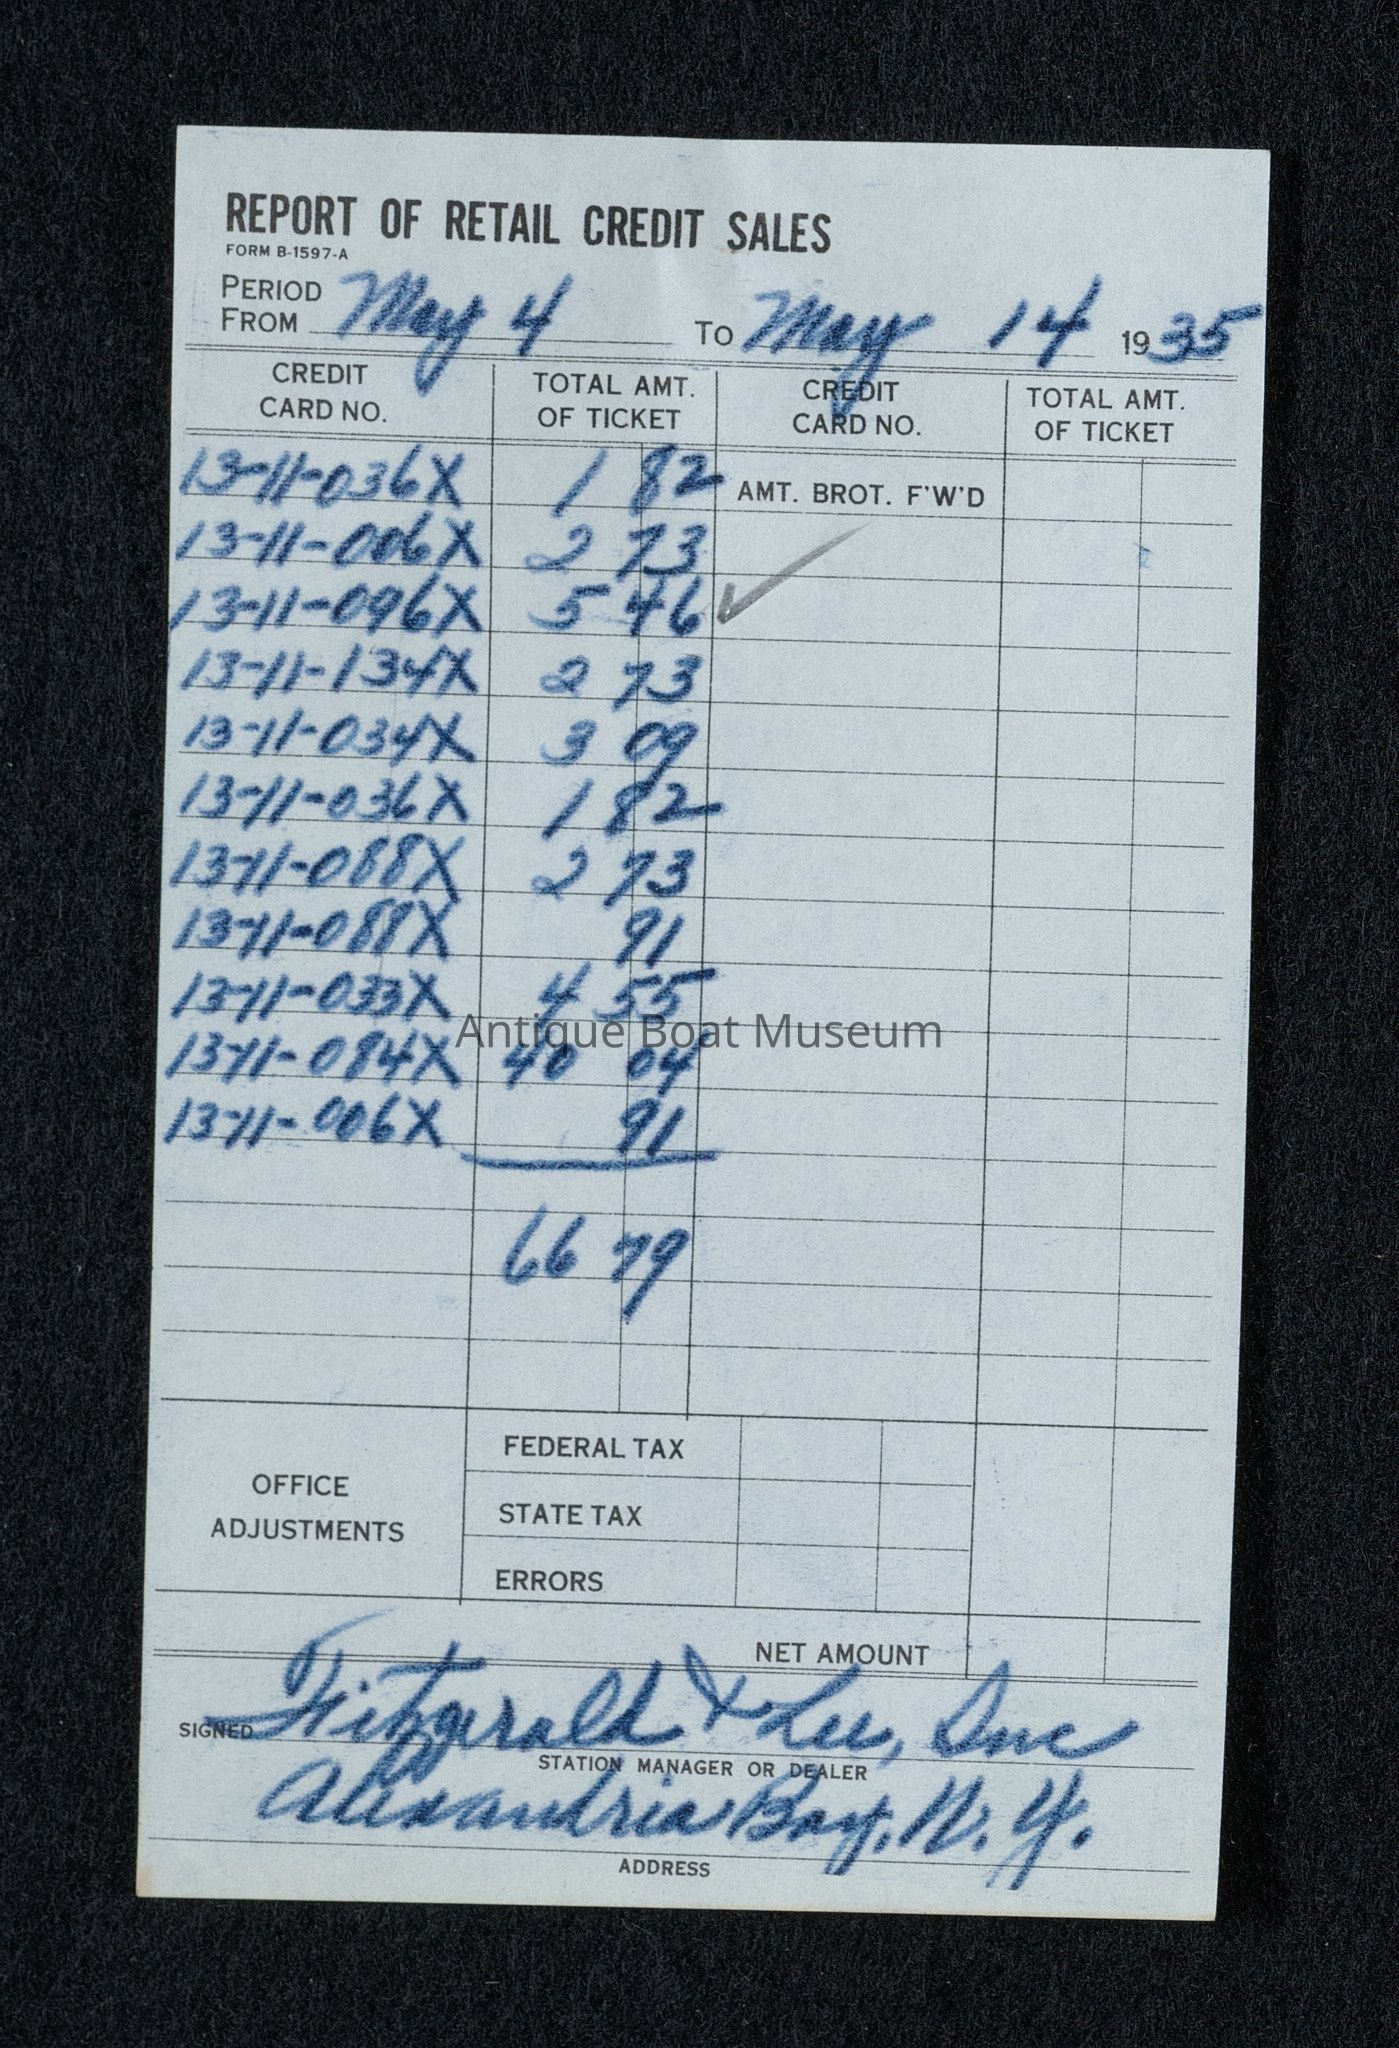 REPORT OF RETAIL CREDIT SALES
FORM B-1597-A
PERIOD
FROM May 4 TO May 14 1935
CREDIT CARD NO. TOTAL AMT. OF TICKET CREDIT CARD NO. TOTAL AMT. OF TICKET
13-11-036X 1 82 AMT. BROT. F'W'D
13-11-006X 2 73
13-11-096X 5 46
13-11-134X 2 73
13-11-034X 3 09
13-11-036X 1 82
13-11-088X 2 73
13-11-088X 91
13-11-033X 4 55
Antique Boat Museum
13-11-084X 40 04
13-11-006X 91
66 79
OFFICE ADJUSTMENTS
FEDERAL TAX
STATE TAX
ERRORS
NET AMOUNT
SIGNED Fitzgerald & Lee, Inc
STATION MANAGER OR DEALER
Alexandria Bay, N. Y.
ADDRESS